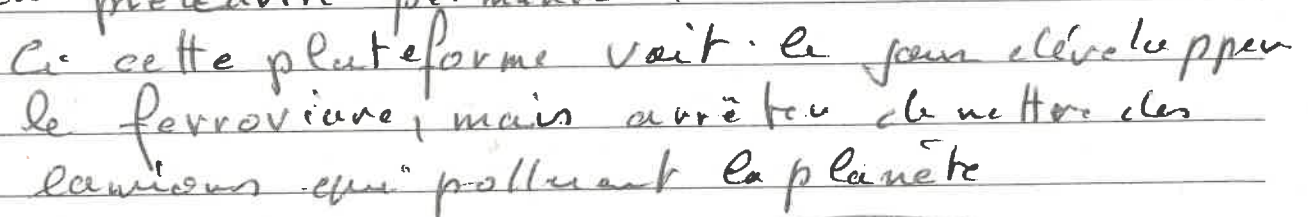 précarité
Ci cette plateforme voit le jour développer
le ferroviaire, mais arrêter de mettre des
camions qui polluent la planète